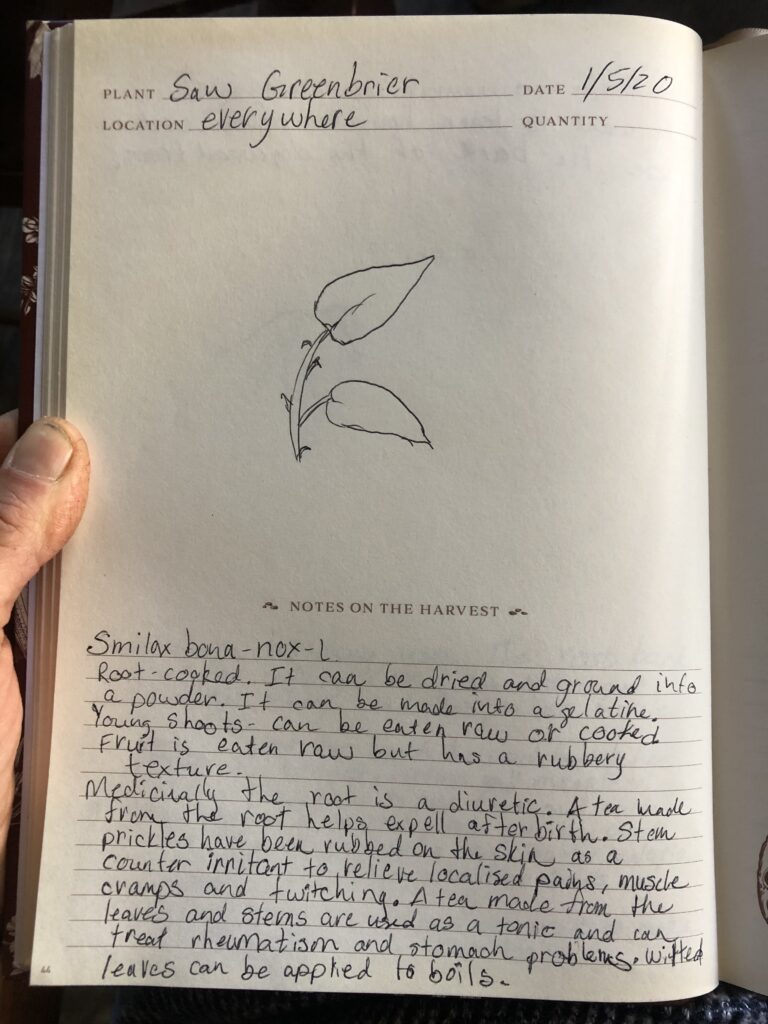 PLANT Saw Greenbrier DATE 1/5/20
LOCATION everywhere QUANTITY
NOTES ON THE HARVEST
Smilax bona-nox-L
Root-cooked. It can be dried and ground into
a powder. It can be made into a gelatine.
Young shoots- can be eaten raw or cooked
Fruit is eaten raw but has a rubbery
texture.
Medicinally the root is a diuretic. A tea made
from the root helps expell afterbirth. Stem
prickles have been rubbed on the skin as a
counter irritant to relieve localised pains, muscle
cramps and twitching. A tea made from the
leaves and stems are used as a tonic and can
treat rheumatism and stomach problems. Wilted
leaves can be applied to boils.
44